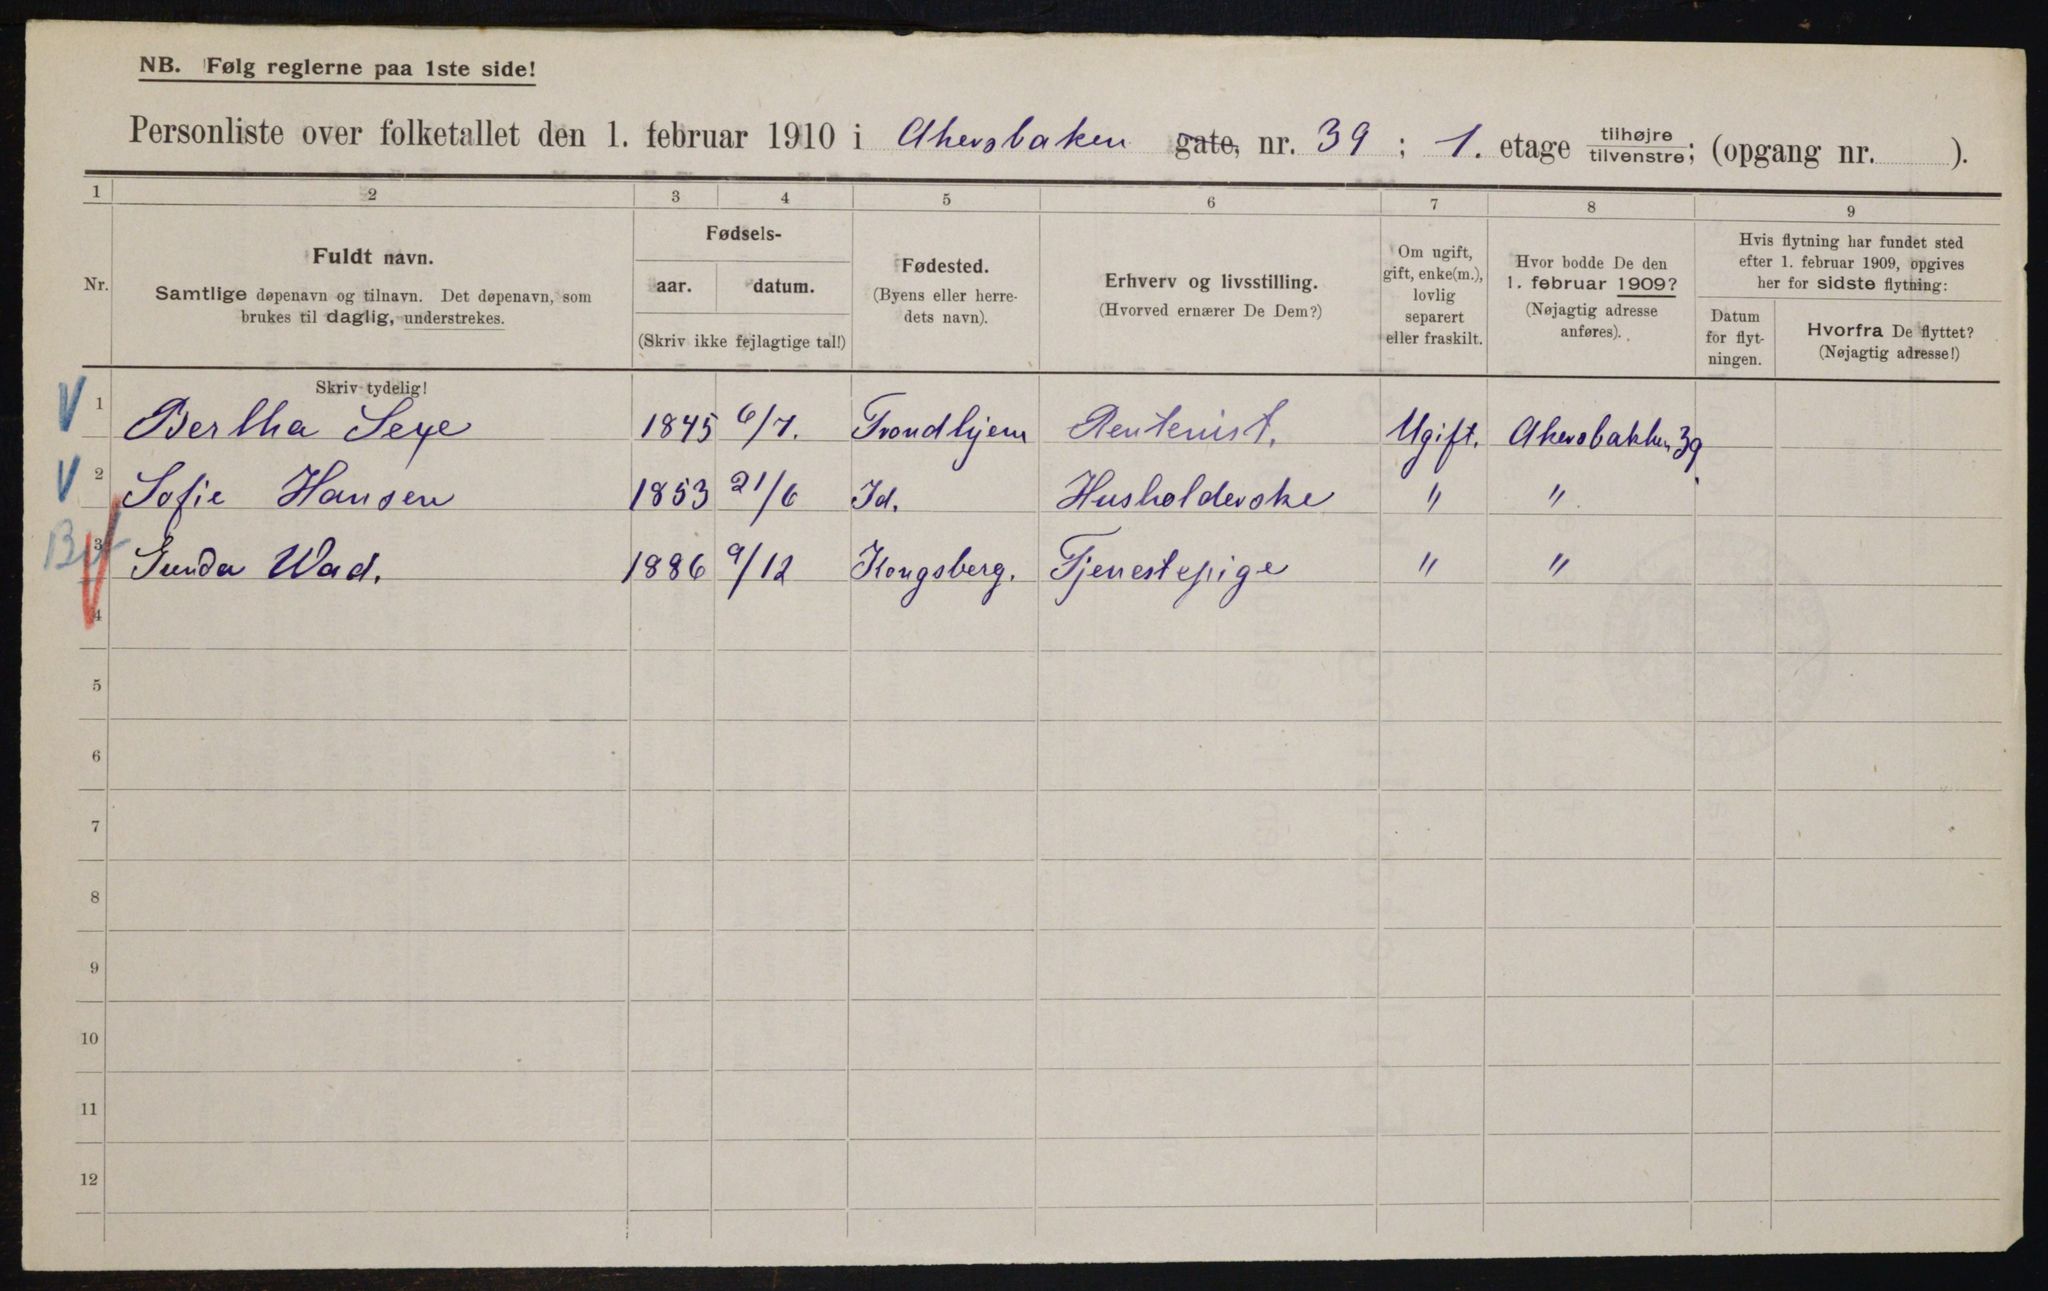 NB. Følg reglerne paa 1ste side!
Personliste over folketallet den 1. februar 1910 i Akersbaken gate, nr. 39 ; 1. etage tilhøjre/tilvenstre; (opgang nr. ).
1 2 3 4 5 6 7 8 9
Nr.
Fuldt navn.
Samtlige døpenavn og tilnavn. Det døpenavn, som
brukes til daglig, understrekes.
Skriv tydelig!
Fødsels-
aar. datum.
(Skriv ikke fejlagtige tal!)
Fødested.
(Byens eller herre-
dets navn).
Erhverv og livsstilling.
(Hvorved ernærer De Dem?)
Om ugift,
gift, enke(m.),
lovlig
separert
eller fraskilt.
Hvor bodde De den
1. februar 1909?
(Nøjagtig adresse
anføres).
Hvis flytning har fundet sted
efter 1. februar 1909, opgives
her for sidste flytning:
Datum
for flyt-
ningen.
Hvorfra De flyttet?
(Nøjagtig adresse!)
1 Bertha Sexe 1845 6/7. Trondhjem Rentenist. Ugift. Akersbakken 39
2 Sofie Hansen 1853 21/6 Id. Husholderske " "
3 Gunda Wad. 1886 9/12 Kongsberg. Tjenestepige " "
4
5
6
7
8
9
10
11
12